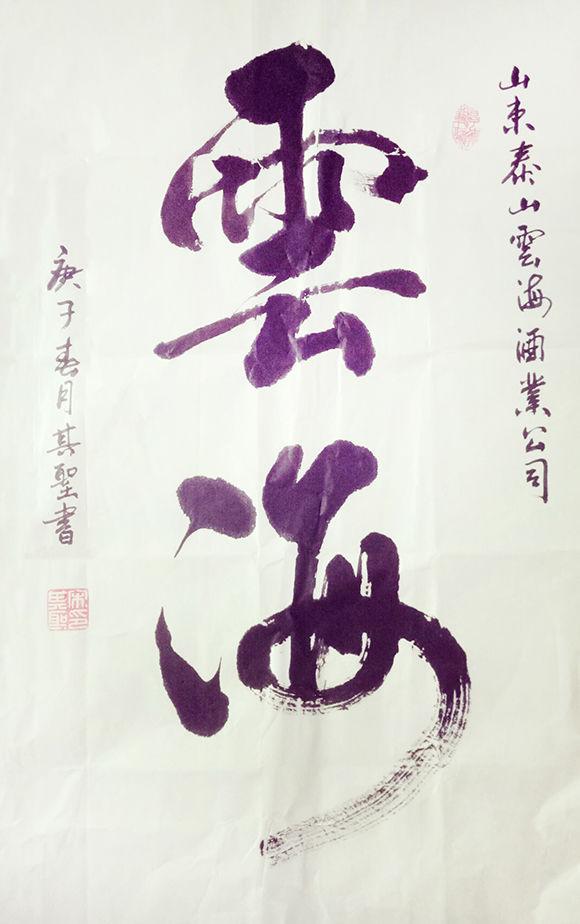 山東泰山雲海酒業公司
雲海
庚子春月其聖書